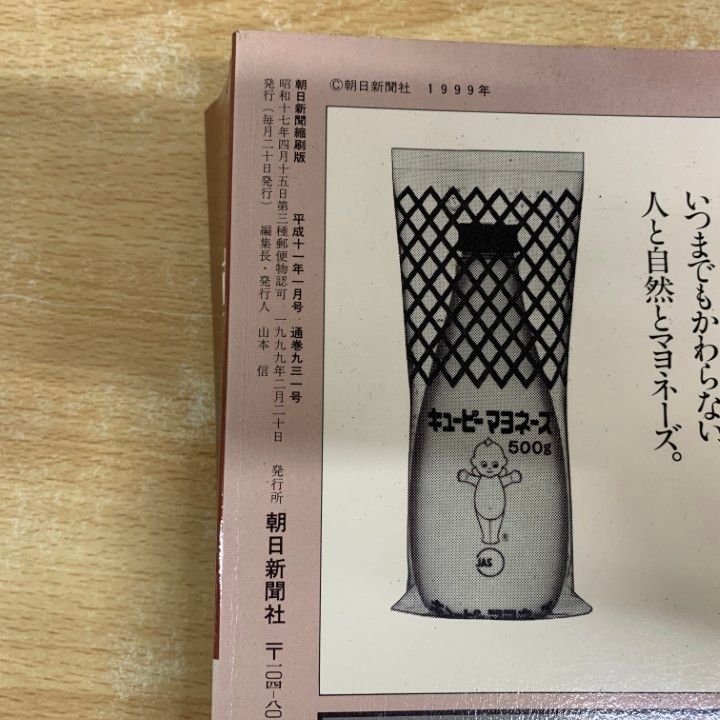 ©朝日新聞社 1999年
朝日新聞縮刷版 平成十一年一月号 通巻九三一号
昭和十七年四月十五日第三種郵便物認可 一九九九年二月二十日
発行(毎月二十日発行) 編集長・発行人 山本 信
発行所 朝日新聞社 〒一〇四-八〇
いつまでもかわらない、
人と自然とマヨネーズ。
キューピーマヨネーズ
500g
®
JAS
キューピーマヨネーズ